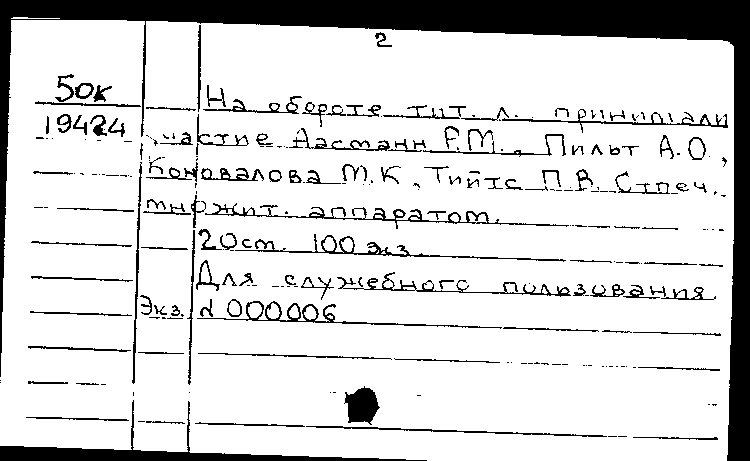 2
50к
На обороте тит. л. принимали
19424
участие Аасманн Р.М., Пильт А.О,
Коновалова М.К, Тийтс П.В. Стпеч.
множит. аппаратом.
20ст. 100 экз.
Для служебного пользования
Экз. N 000006